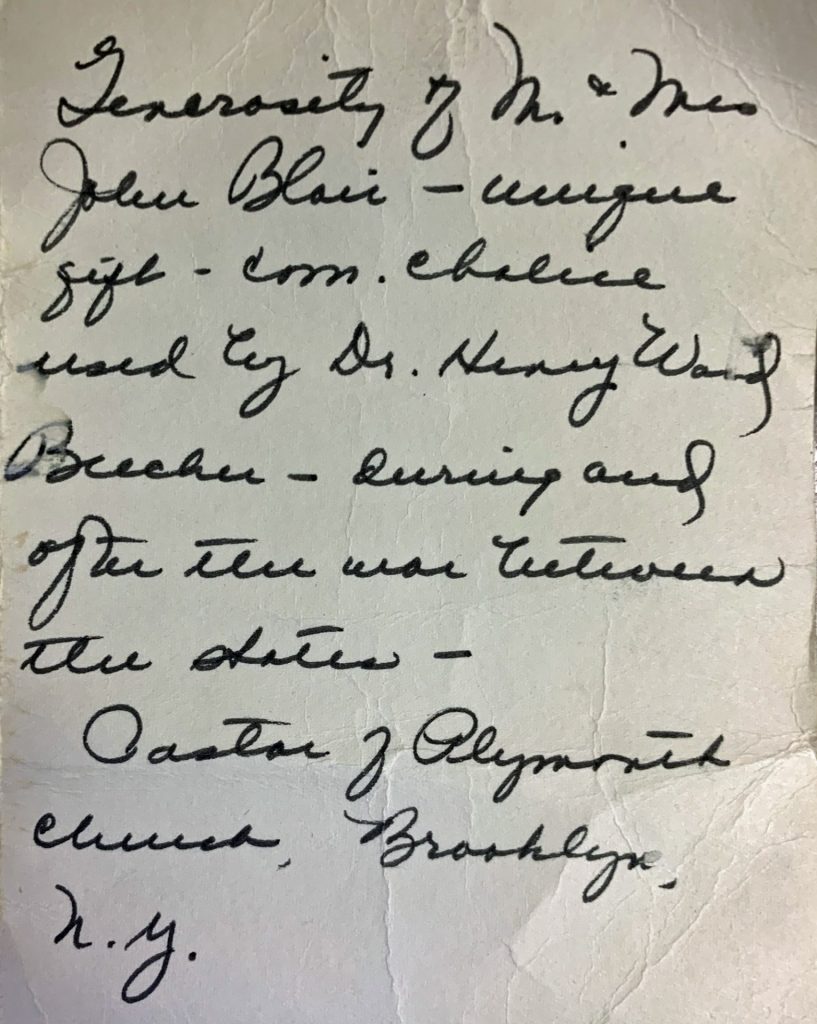 Generosity of Mr. & Mrs
John Blair - unique
gift - com. chalice
used by Dr. Henry Ward
Beecher - during and
after the war between
the states -
Pastor of Plymouth
Church, Brooklyn,
N.Y.